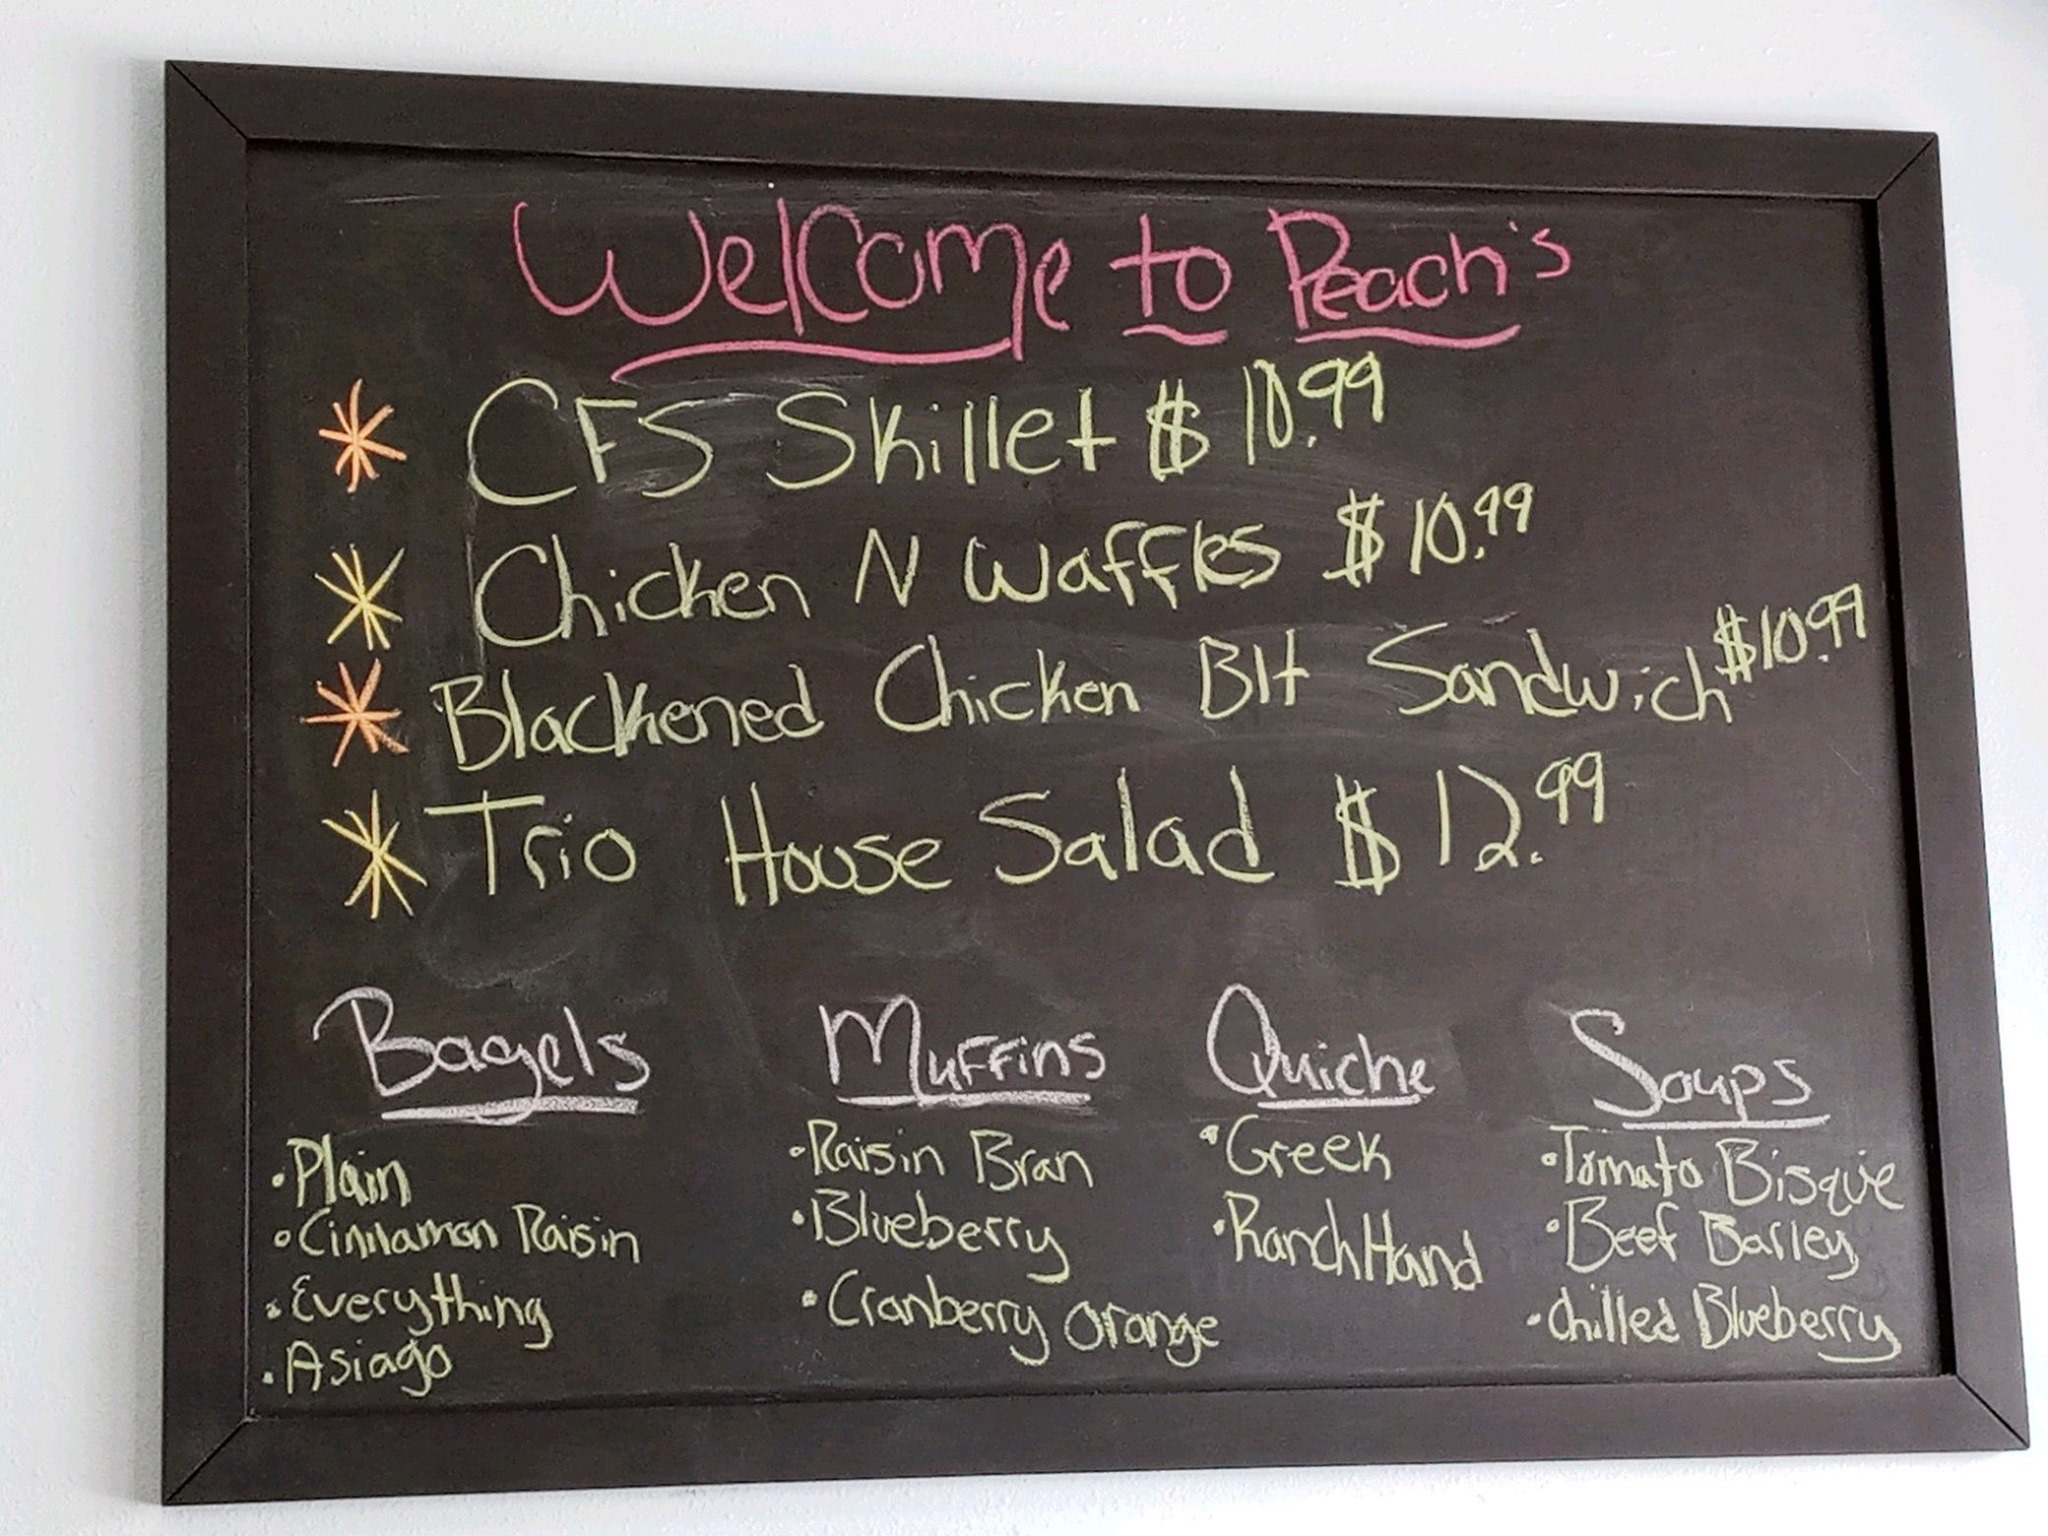 Welcome to Peach's
CFS Skillet $10.99
Chicken N Waffles $10.99
Blackened Chicken Blt Sandwich $10.99
Trio House Salad $12.99
Bagels
• Plain
• Cinnamon Raisin
• Everything
• Asiago
Muffins
• Raisin Bran
• Blueberry
• Cranberry Orange
Quiche
• Greek
• Ranch Hand
Soups
• Tomato Bisque
• Beef Barley
• Chilled Blueberry